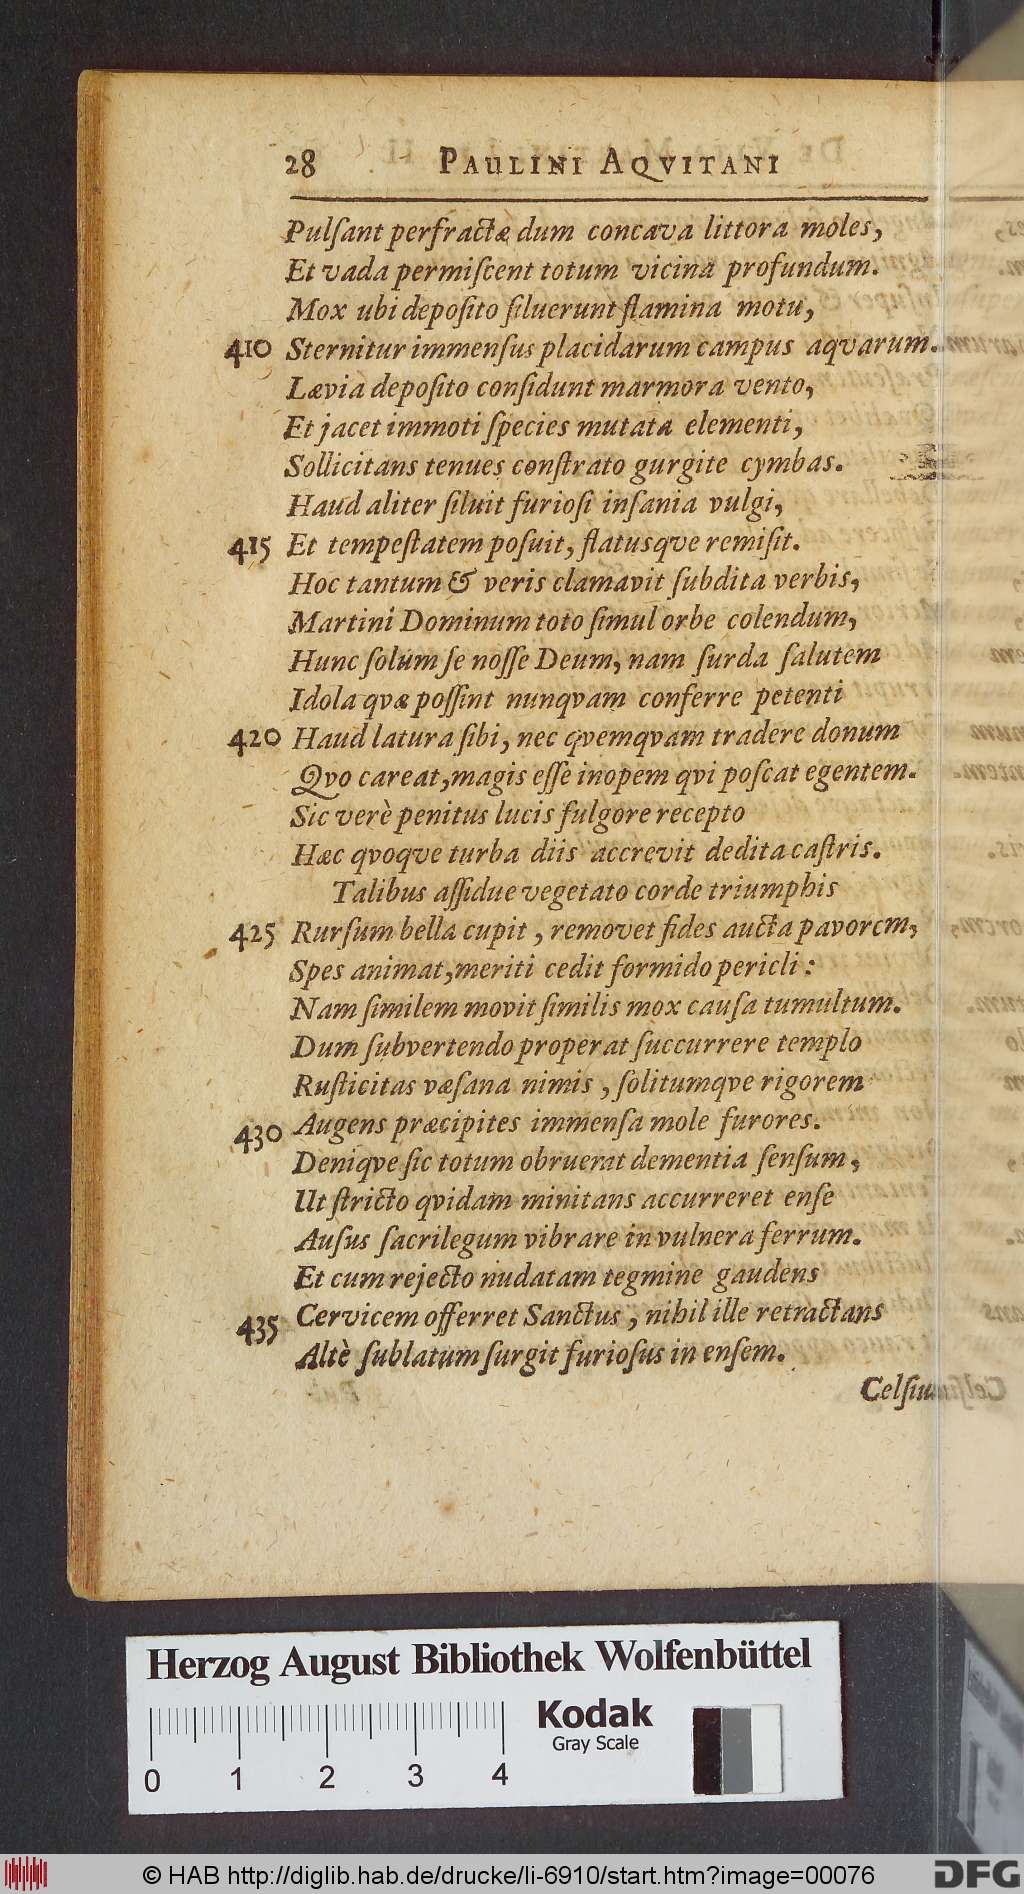 28 PAULINI AQVITANI
Pulſant perfractæ dum concava littora moles,
Et vada permiſcent totum vicina profundum.
Mox ubi depoſito ſiluerunt flamina motu,
410 Sternitur immenſus placidarum campus aqvarum.
Lævia depoſito conſidunt marmora vento,
Et jacet immoti ſpecies mutata elementi,
Sollicitans tenues conſtrato gurgite cymbas.
Haud aliter ſiluit furioſi inſania vulgi,
415 Et tempeſtatem poſuit, flatusqve remiſit.
Hoc tantum & veris clamavit ſubdita verbis,
Martini Dominum toto ſimul orbe colendum,
Hunc ſolum ſe noſſe Deum, nam ſurda ſalutem
Idola qvæ poſſint nunqvam conferre petenti
420 Haud latura ſibi, nec qvemqvam tradere donum
Qvo careat, magis eſſe inopem qvi poſcat egentem.
Sic verè penitus lucis fulgore recepto
Hæc qvoqve turba diis accrevit dedita caſtris.
Talibus aſſidue vegetato corde triumphis
425 Rurſum bella cupit, removet fides aucta pavorem,
Spes animat, meriti cedit formido pericli:
Nam ſimilem movit ſimilis mox cauſa tumultum.
Dum ſubvertendo properat ſuccurrere templo
Ruſticitas væſana nimis, ſolitumqve rigorem
430 Augens præcipites immenſa mole furores.
Deniqve ſic totum obruerat dementia ſenſum,
Ut ſtricto qvidam minitans accurreret enſe
Auſus ſacrilegum vibrare in vulnera ferrum.
Et cum rejecto nudatam tegmine gaudens
435 Cervicem offerret Sanctus, nihil ille retractans
Altè ſublatum ſurgit furioſus in enſem.
Herzog August Bibliothek Wolfenbüttel
Kodak
Gray Scale
0 1 2 3 4
© HAB http://diglib.hab.de/drucke/li-6910/start.htm?image=00076
DFG